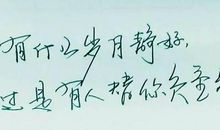 有什么岁月静好,
过是有人替你负重